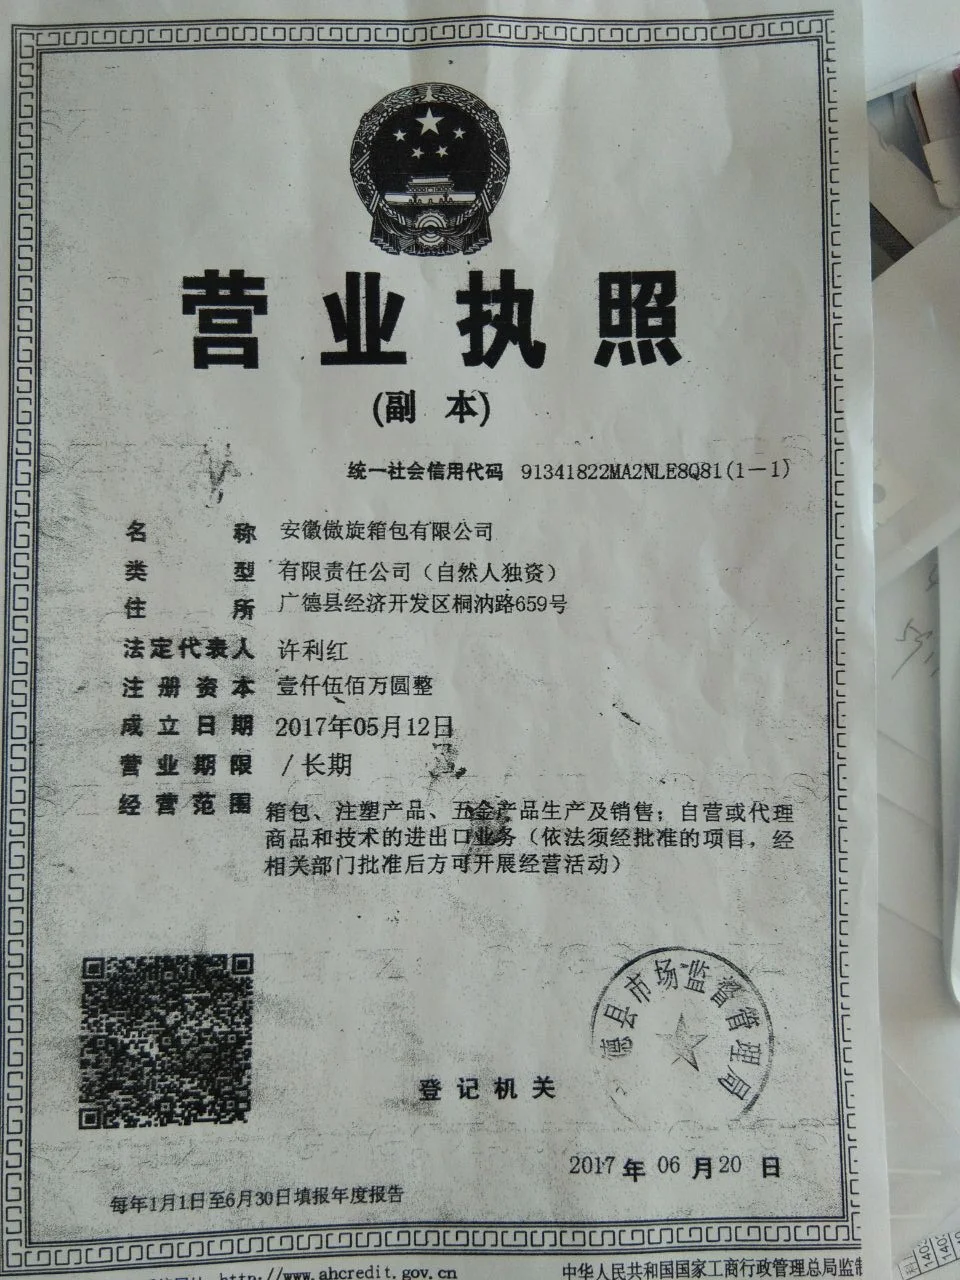 营业执照
(副 本)
统一社会信用代码 91341822MA2NLE8Q81(1-1)
名 称 安徽傲旋箱包有限公司
类 型 有限责任公司（自然人独资）
住 所 广德县经济开发区桐汭路659号
法定代表人 许利红
注册资本 壹仟伍佰万圆整
成立日期 2017年05月12日
营业期限 /长期
经营范围 箱包、注塑产品、五金产品生产及销售；自营或代理
商品和技术的进出口业务（依法须经批准的项目，经
相关部门批准后方可开展经营活动）
德县市场监督管理局
登记机关
2017 年 06 月 20 日
每年1月1日至6月30日填报年度报告
http://www.ahcredit.gov.cn
中华人民共和国国家工商行政管理总局监制